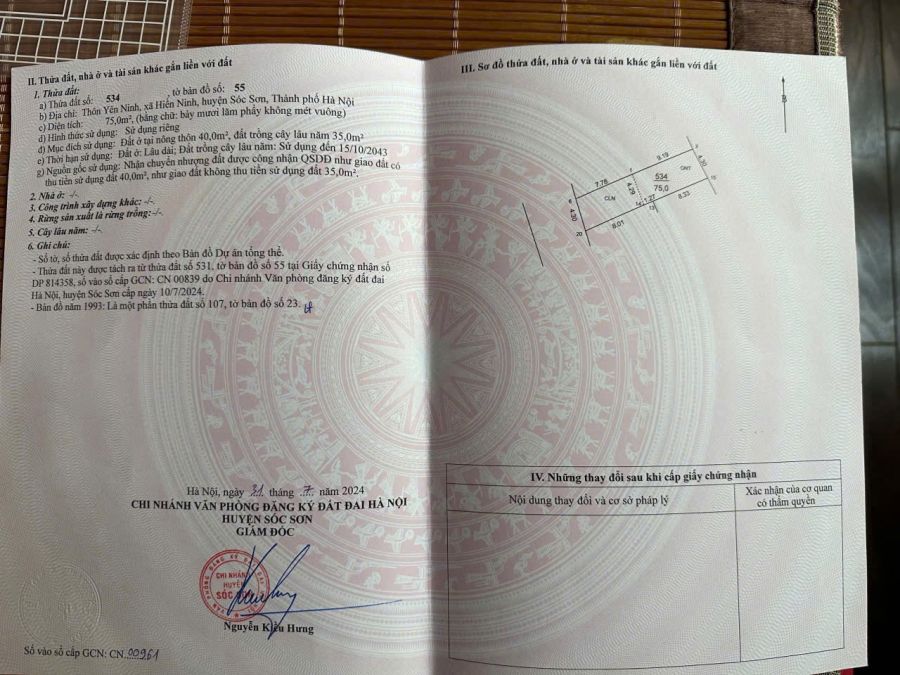 II. Thửa đất, nhà ở và tài sản khác gắn liền với đất
1. Thửa đất:
a) Thửa đất số: 534 , tờ bản đồ số: 55
b) Địa chỉ: Thôn Yên Ninh, xã Hiền Ninh, huyện Sóc Sơn, Thành phố Hà Nội
c) Diện tích: 75,0m², (bằng chữ: bảy mươi lăm phẩy không mét vuông)
d) Hình thức sử dụng: Sử dụng riêng
đ) Mục đích sử dụng: Đất ở tại nông thôn 40,0m², đất trồng cây lâu năm 35,0m²
e) Thời hạn sử dụng: Đất ở: Lâu dài; Đất trồng cây lâu năm: Sử dụng đến 15/10/2043
g) Nguồn gốc sử dụng: Nhận chuyển nhượng đất được công nhận QSDĐ như giao đất có
thu tiền sử dụng đất 40,0m², như giao đất không thu tiền sử dụng đất 35,0m²,
2. Nhà ở: -/-
3. Công trình xây dựng khác: -/-
4. Rừng sản xuất là rừng trồng:-/-
5. Cây lâu năm: -/-
6. Ghi chú:
- Số tờ, số thửa đất được xác định theo Bản đồ Dự án tổng thể.
- Thửa đất này được tách ra từ thửa đất số 531, tờ bản đồ số 55 tại Giấy chứng nhận số
DP 814358, số vào sổ cấp GCN: CN 00839 do Chi nhánh Văn phòng đăng ký đất đai
Hà Nội, huyện Sóc Sơn cấp ngày 10/7/2024.
- Bản đồ năm 1993: Là một phần thửa đất số 107, tờ bản đồ số 23.
Hà Nội, ngày 31 tháng 7 năm 2024
CHI NHÁNH VĂN PHÒNG ĐĂNG KÝ ĐẤT ĐAI HÀ NỘI
HUYỆN SÓC SƠN
GIÁM ĐỐC
CHI NHÁNH
HUYỆN
SÓC SƠN
Nguyễn Kiều Hưng
Số vào sổ cấp GCN: CN 00961
III. Sơ đồ thửa đất, nhà ở và tài sản khác gắn liền với đất
B
7,78
9,19
4,30
CLN
4,29
534
75,0
ONT
4,30
6
20
8,01
1,27
13
8,33
15
IV. Những thay đổi sau khi cấp giấy chứng nhận
Nội dung thay đổi và cơ sở pháp lý
Xác nhận của cơ quan
có thẩm quyền